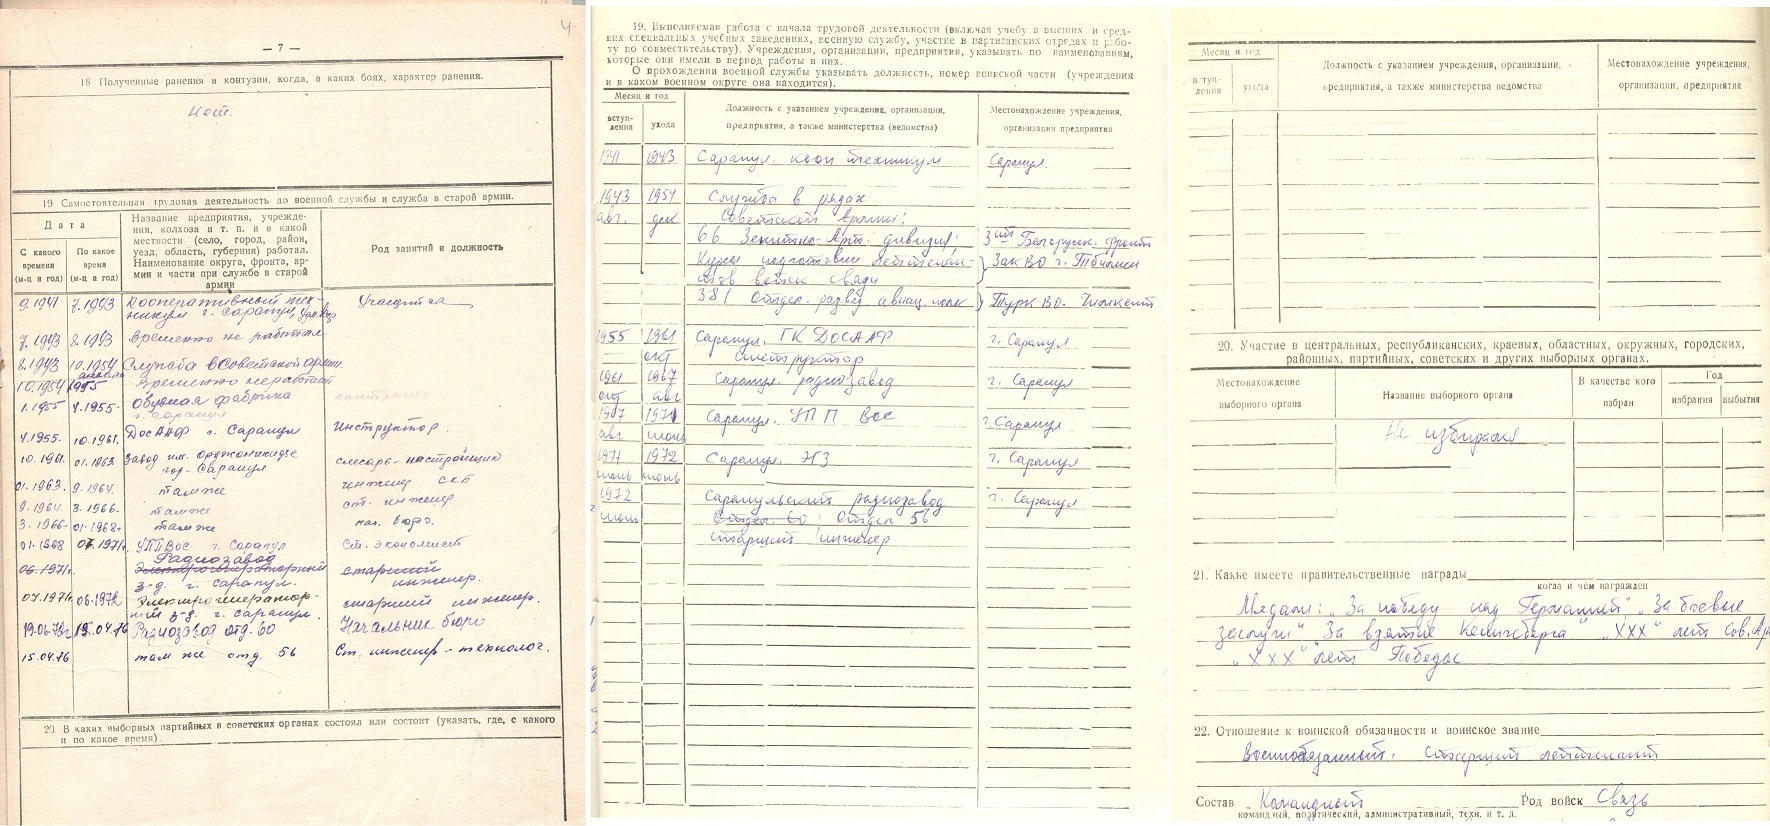 4
— 7 —
18 Полученные ранения и контузии, когда, в каких боях, характер ранения.
Нет.
19 Самостоятельная трудовая деятельность до военной службы и служба в старой армии.
Дата
С какого времени (м-ц и год)
По какое время (м-ц и год)
Название предприятия, учрежде-
ния, колхоза и т. п. и в какой
местности (село, город, район,
уезд, область, губерния) работал.
Наименование округа, фронта, ар-
мии и части при службе в старой
армии
Род занятий и должность
9.1941 7.1943 Кооперативный тех- Учащийся
никум г. Сарапул,
7.1943 8.1943 временно не работал
8.1943 10.1954 Служба в Советской армии.
10.1954 1955 временно не работал
1.1955 4.1955. Обувная фабрика
г. Сарапул
4.1955. 10.1961. ДосААФ г. Сарапул Инструктор.
10.1961. 01.1963 Завод им. Орджоникидзе слесарь-настройщик
гор. Сарапул
01.1963. 9.1964. там же инженер СКБ
9.1964. 3.1966. там же ст. инженер
3.1966. 01.1968г там же нач. бюро.
01.1968 07.1971г. УПП Вос г. Сарапул Ст. экономист
Радиозавод
06.1971г. Электрогенераторный старший
з-д. г. Сарапул. инженер.
07.1971г. 06.1972 Электрогенератор- старший инженер.
ный з-д. г. Сарапул.
19.06.72г 15.04.76 Радиозавод отд. 60 Начальник бюро
15.04.76 там же отд. 56 Ст. инженер-технолог.
20. В каких выборных партийных и советских органах состоял или состоит (указать, где, с какого
и по какое время).
19. Выполняемая работа с начала трудовой деятельности (включая учебу в высших и сред-
них специальных учебных заведениях, военную службу, участие в партизанских отрядах и рабо-
ту по совместительству). Учреждения, организации, предприятия, указывать по наименованиям,
которые они имели в период работы в них.
О прохождении военной службы указывать должность, номер воинской части (учреждения
и в каком военном округе она находится).
Месяц и год
вступ-
ления
ухода
Должность с указанием учреждения, организации,
предприятия, а также министерства (ведомства)
Местонахождение учреждения,
организации предприятия
1941 1943 Сарапул. кооп техникум Сарапул.
1943 1954 Служба в рядах
авг. дек Советской Армии:
66 Зенитно-Арт. дивизия; 3ий Белорусск. фронт
Курсы подготовки лейтенан- } ЗакВО г. Тбилиси
тов войск связи
381 отдел. развед авиац. полк } ТуркВО. Чимкент
1955 1961 Сарапул. ГК ДОСААФ г. Сарапул
— окт инструктор
1961 1967 Сарапул. радиозавод г. Сарапул
окт авг
1967 1971 Сарапул. УПП Вос г. Сарапул
авг июнь
1971 1972 Сарапул. ЭГЗ г. Сарапул
июнь июнь
1972 Сарапульский радиозавод г. Сарапул
июнь Отдел 60; Отдел 56
старший инженер
Месяц и год
вступ-
ления
ухода
Должность с указанием учреждения, организации,
предприятия, а также министерства ведомства
Местонахождение учреждения,
организации, предприятия
20. Участие в центральных, республиканских, краевых, областных, окружных, городских,
районных, партийных, советских и других выборных органах.
Местонахождение
выборного органа
Название выборного органа
В качестве кого
избран
Год
избрания
выбытия
Не избирался
21. Какие имеете правительственные награды
когда и чем награжден
Медали: „За победу над Германией" „За боевые
заслуги" „За взятие Кенигсберга" „XXX" лет Сов. Ар
„XXX" лет Победы
22. Отношение к воинской обязанности и воинское звание
Военнообязанный. Старший лейтенант
Состав Командный Род войск Связь
командный, политический, административный, техн. и т. д.